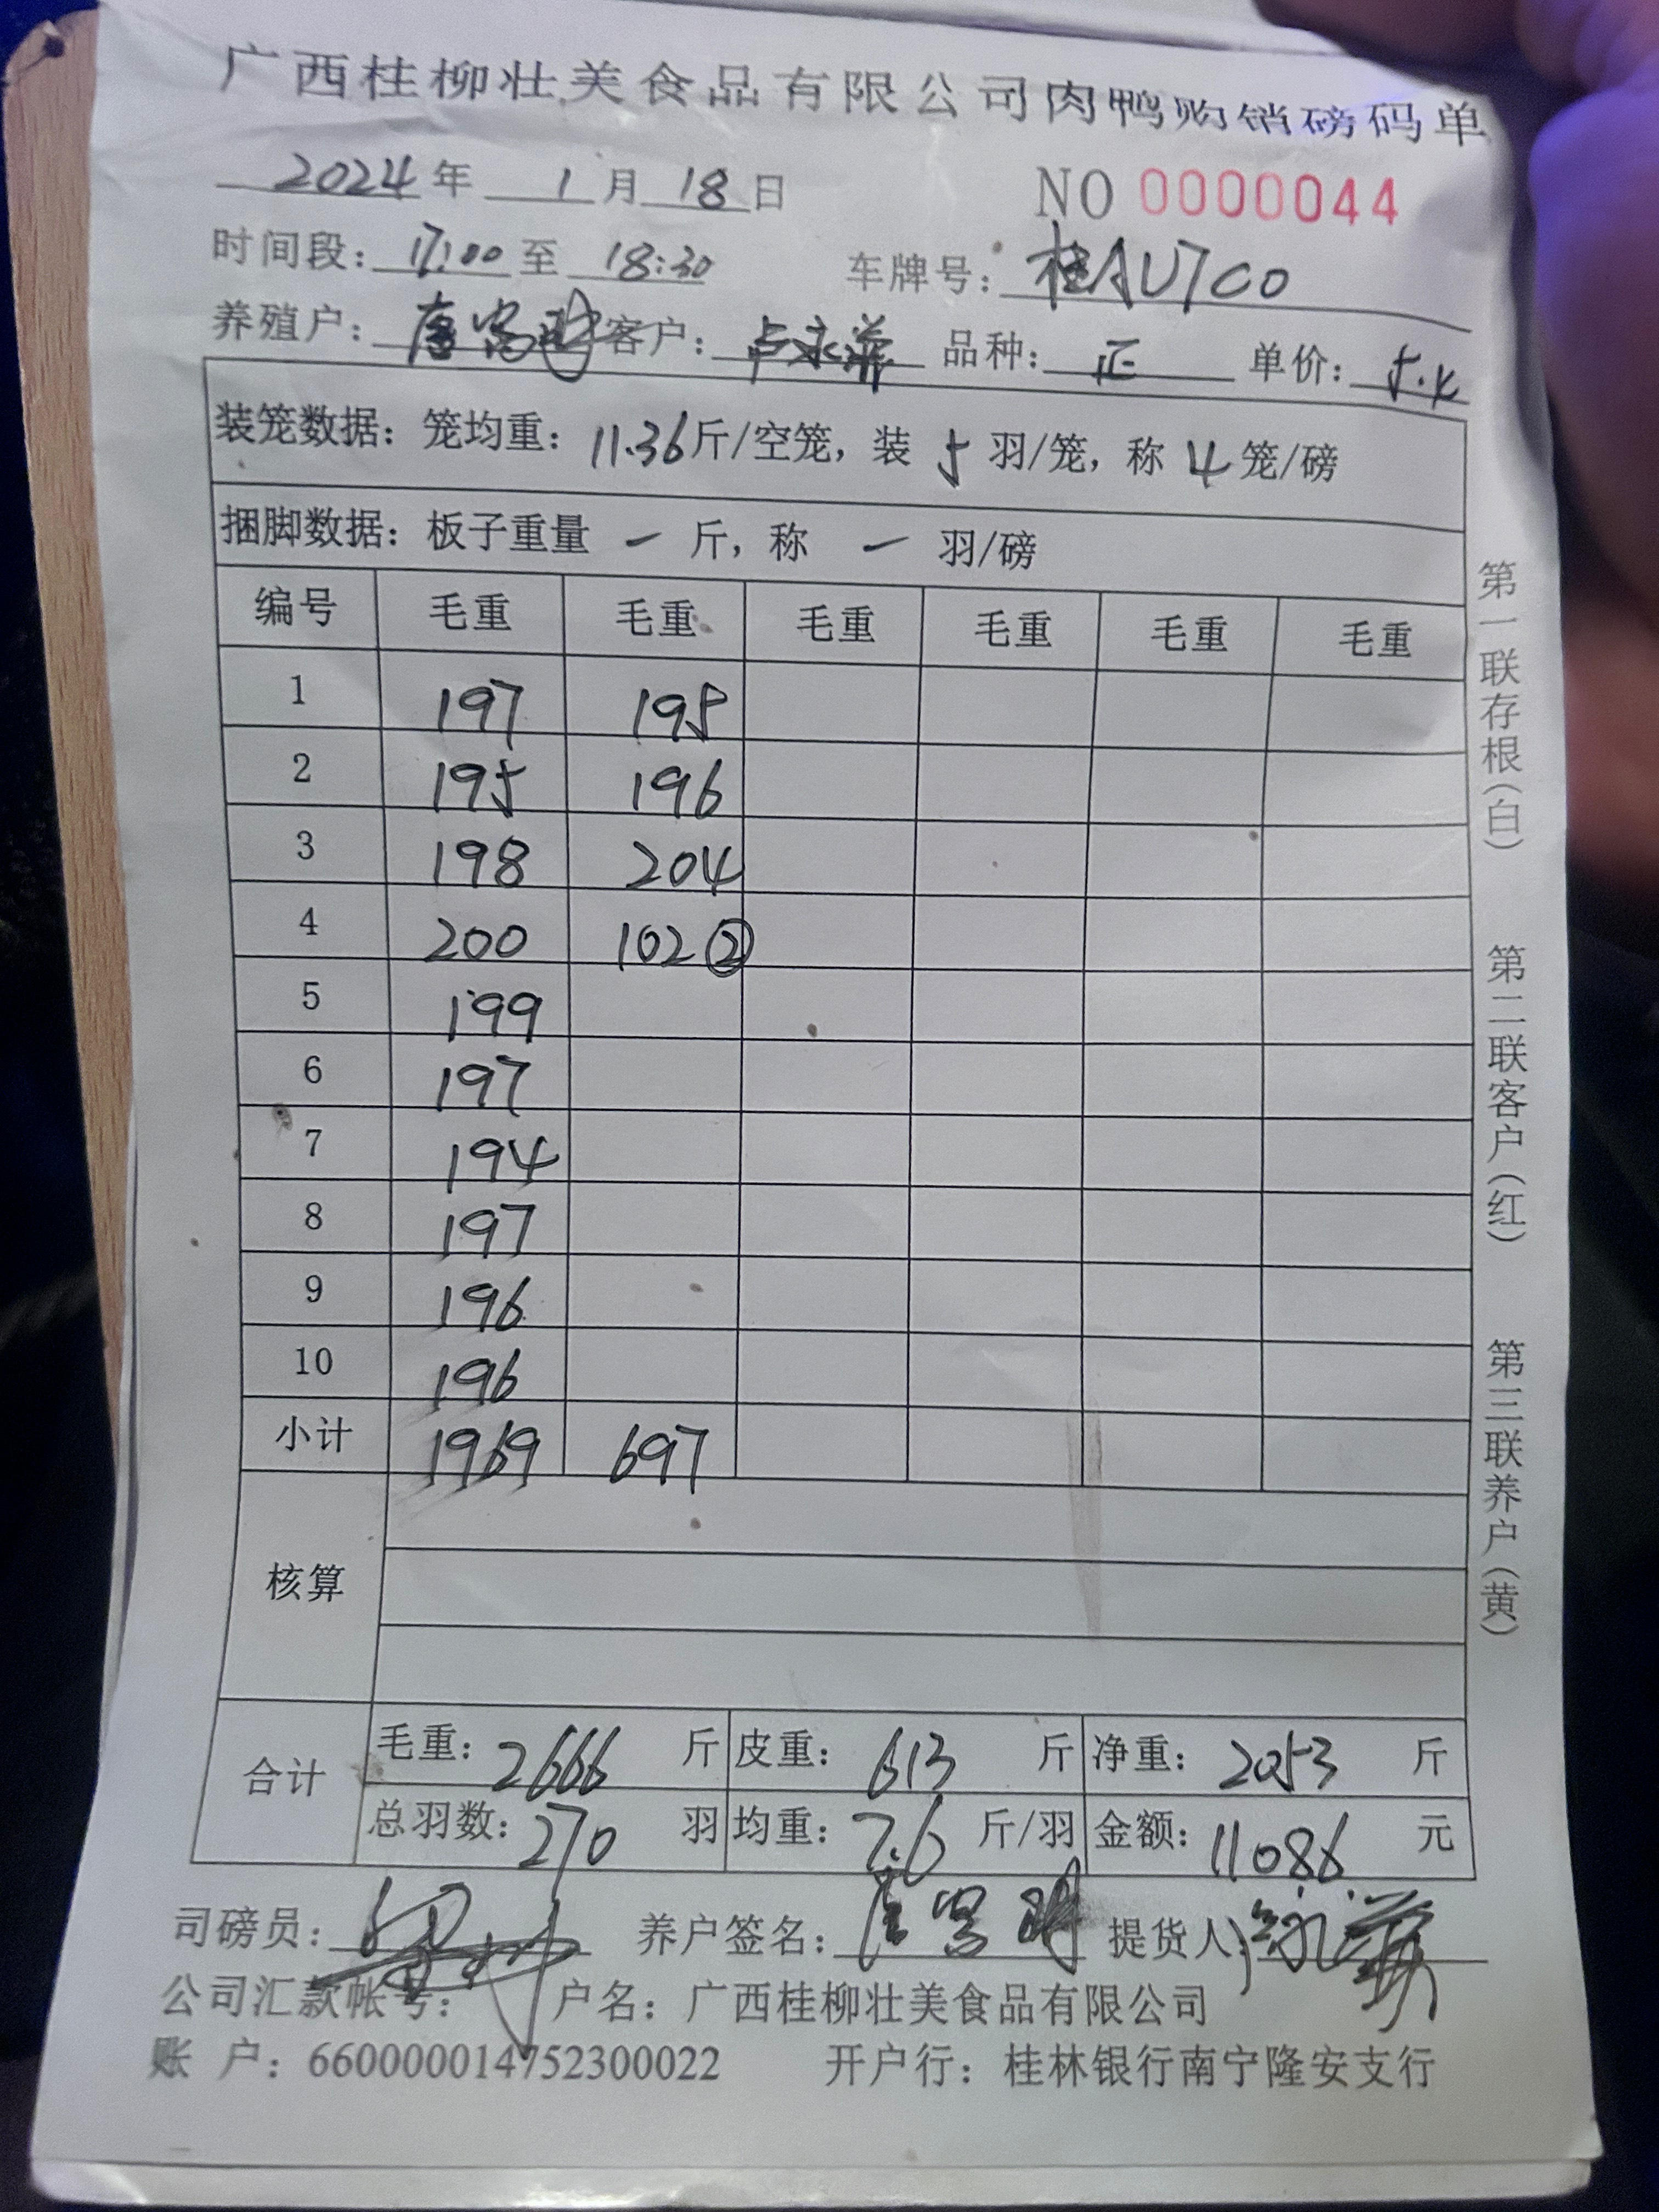 广西桂柳壮美食品有限公司肉鸭购销磅码单
2024年 1月18日 NO 0000044
时间段：17:00至 18:30 车牌号：桂AU7C0
养殖户： 客户：卢永 品种：正 单价：5.4
装笼数据：笼均重：11.36斤/空笼，装 5 羽/笼，称 4 笼/磅
捆脚数据：板子重量 一 斤，称 一 羽/磅
编号 毛重 毛重 毛重 毛重 毛重 毛重
1 197 195
2 195 196
3 198 204
4 200 102②
5 199
6 197
7 194
8 197
9 196
10 196
小计 1969 697
核算
合计
毛重：2666 斤 皮重：613 斤 净重：2053 斤
总羽数：270 羽 均重：7.6 斤/羽 金额：11086 元
司磅员： 养户签名： 提货人：
公司汇款帐号： 户名：广西桂柳壮美食品有限公司
账 户：660000014752300022 开户行：桂林银行南宁隆安支行
第一联存根（白）
第二联客户（红）
第三联养户（黄）